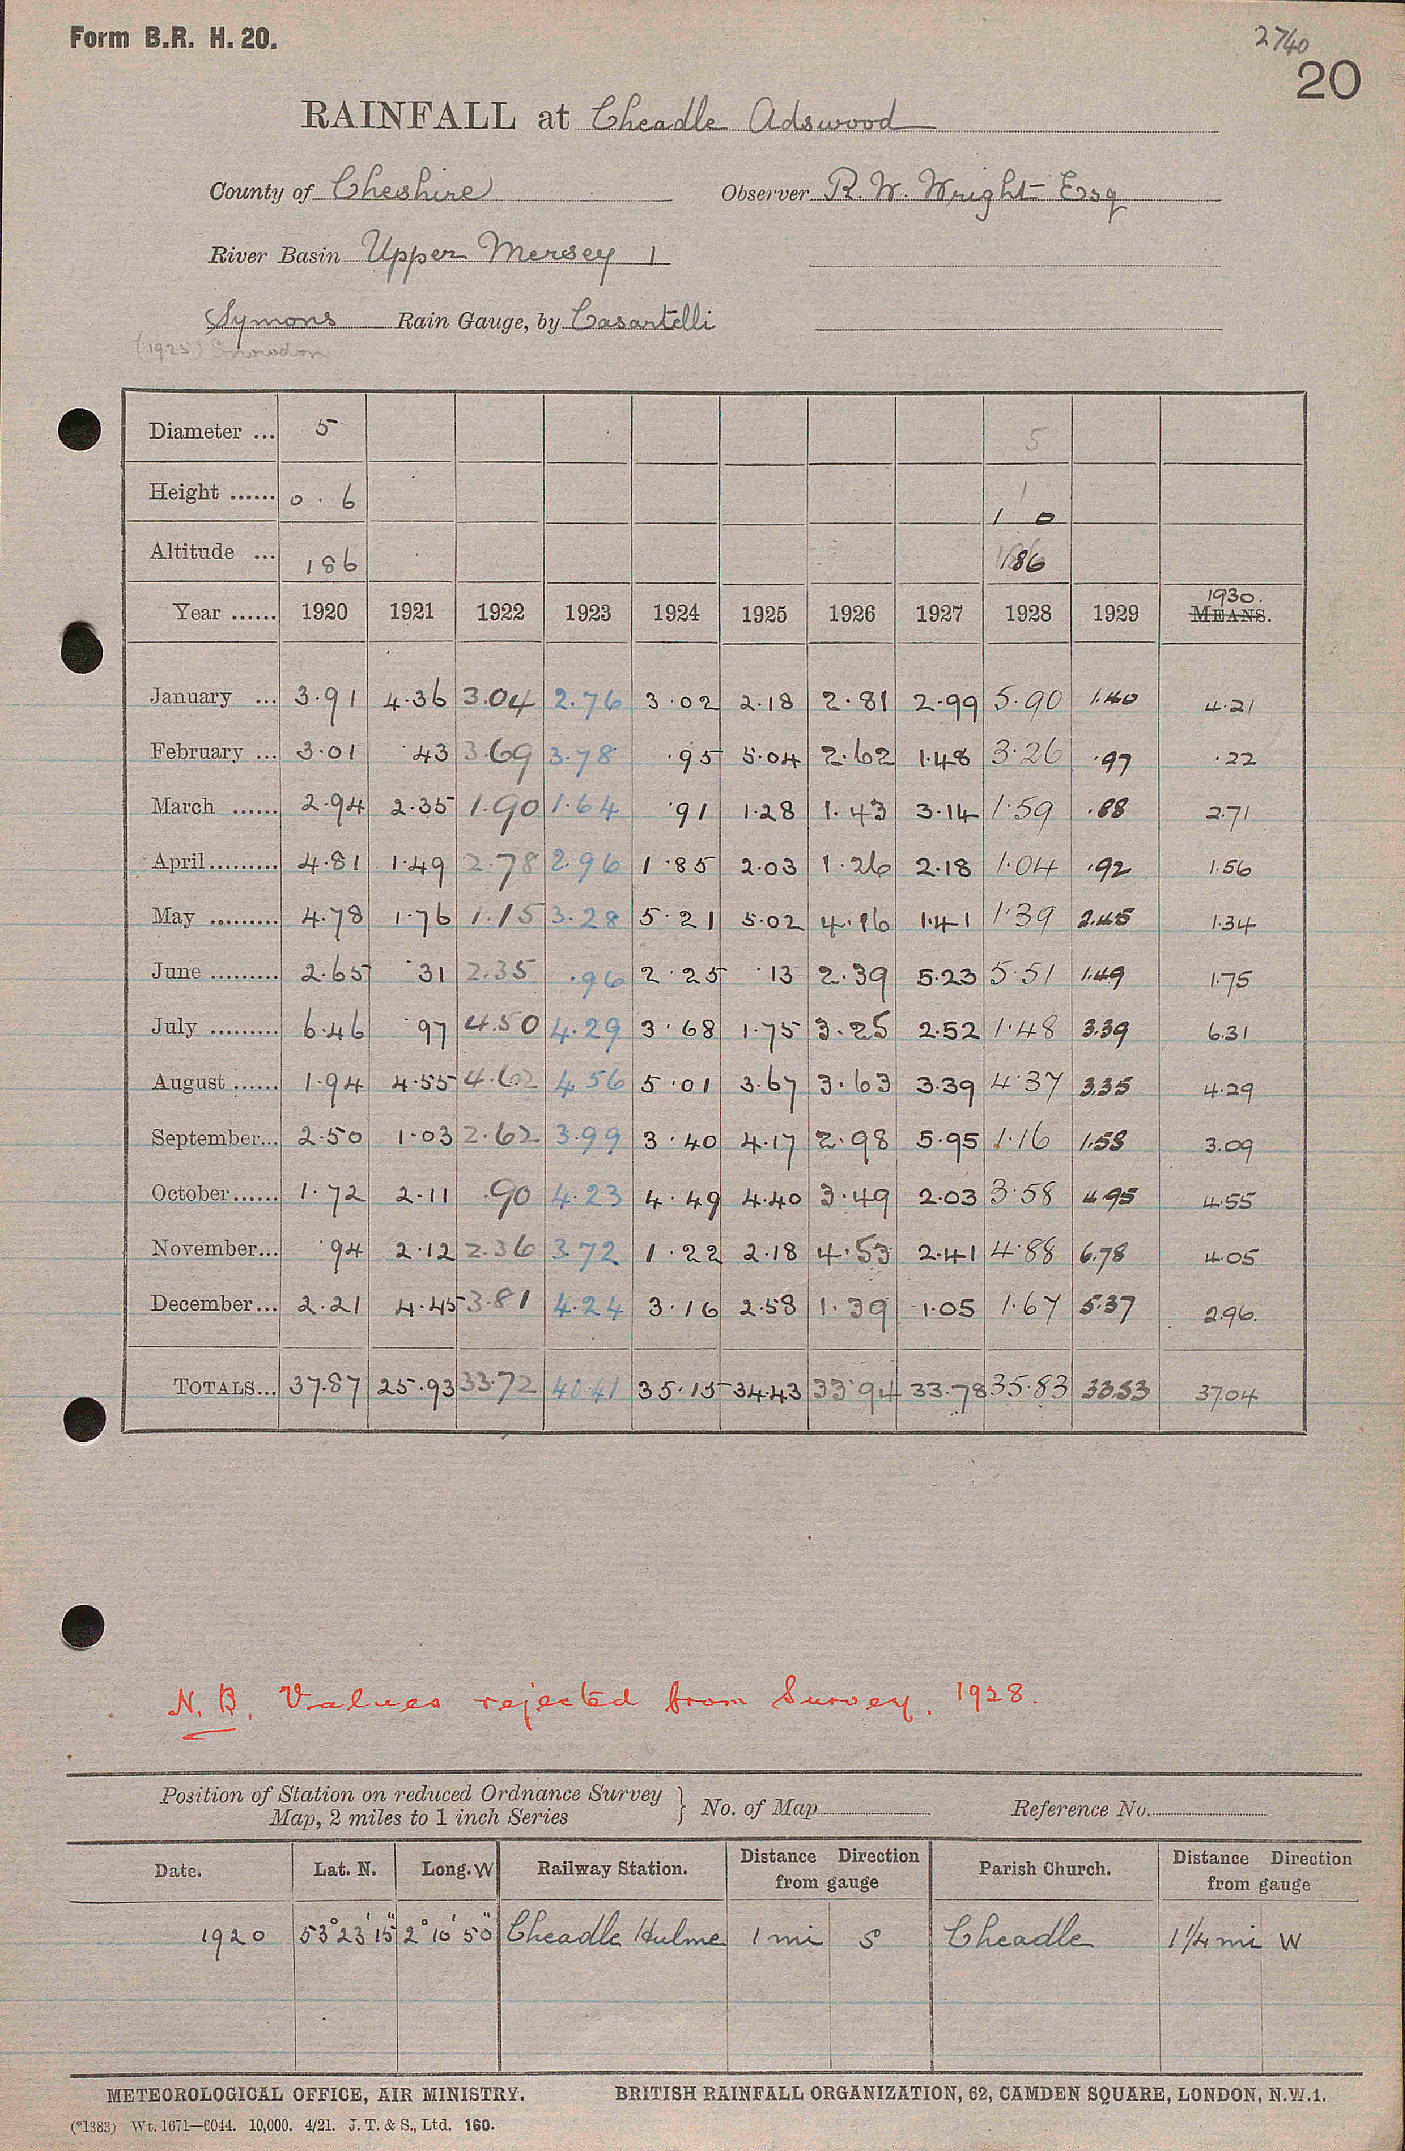 Form B.R. H. 20.
2740
20
RAINFALL at Cheadle Adswood
County of Cheshire Observer R. W. Wright Esq
River Basin Upper Mersey 1
Symons Rain Gauge, by Casartelli
(1925) Snowdon
Diameter ... 5 5
Height ...... 0 . 6 1
1 0
Altitude ... 186 186
1930.
Year ...... 1920 1921 1922 1923 1924 1925 1926 1927 1928 1929 MEANS.
January ... 3.91 4.36 3.04 2.76 3.02 2.18 2.81 2.99 5.90 1.40 4.21
February ... 3.01 .43 3.69 3.78 .95 5.04 2.62 1.48 3.26 .97 .22
March ...... 2.94 2.35 1.90 1.64 .91 1.28 1.43 3.14 1.59 .88 2.71
April......... 4.81 1.49 2.78 2.96 1.85 2.03 1.26 2.18 1.04 .92 1.56
May ......... 4.78 1.76 1.15 3.28 5.21 5.02 4.16 1.41 1.39 2.45 1.34
June ......... 2.65 .31 2.35 .96 2.25 .13 2.39 5.23 5.51 1.49 1.75
July ......... 6.46 .97 4.50 4.29 3.68 1.75 3.25 2.52 1.48 3.39 6.31
August ...... 1.94 4.55 4.62 4.56 5.01 3.67 3.63 3.39 4.37 3.35 4.29
September... 2.50 1.03 2.62 3.99 3.40 4.17 2.98 5.95 1.16 1.58 3.09
October...... 1.72 2.11 .90 4.23 4.49 4.40 3.49 2.03 3.58 4.95 4.55
November... .94 2.12 2.36 3.72 1.22 2.18 4.53 2.41 4.88 6.78 4.05
December... 2.21 4.45 3.81 4.24 3.16 2.58 1.39 1.05 1.67 5.37 2.96.
TOTALS... 37.87 25.93 33.72 40.41 35.15 34.43 33.94 33.78 35.83 33.53 37.04
N.B. Values rejected from Survey. 1928.
Position of Station on reduced Ordnance Survey
Map, 2 miles to 1 inch Series } No. of Map Reference No.
Date. Lat. N. Long. W Railway Station. Distance Direction from gauge Parish Church. Distance Direction from gauge
1920 53° 23' 15" 2° 10' 50" Cheadle Hulme 1 mi S Cheadle 1 1/4 mi W
METEOROLOGICAL OFFICE, AIR MINISTRY. BRITISH RAINFALL ORGANIZATION, 62, CAMDEN SQUARE, LONDON, N.W.1.
(*1383) Wt. 1671—6044. 10,000. 4/21. J. T. & S., Ltd. 160.